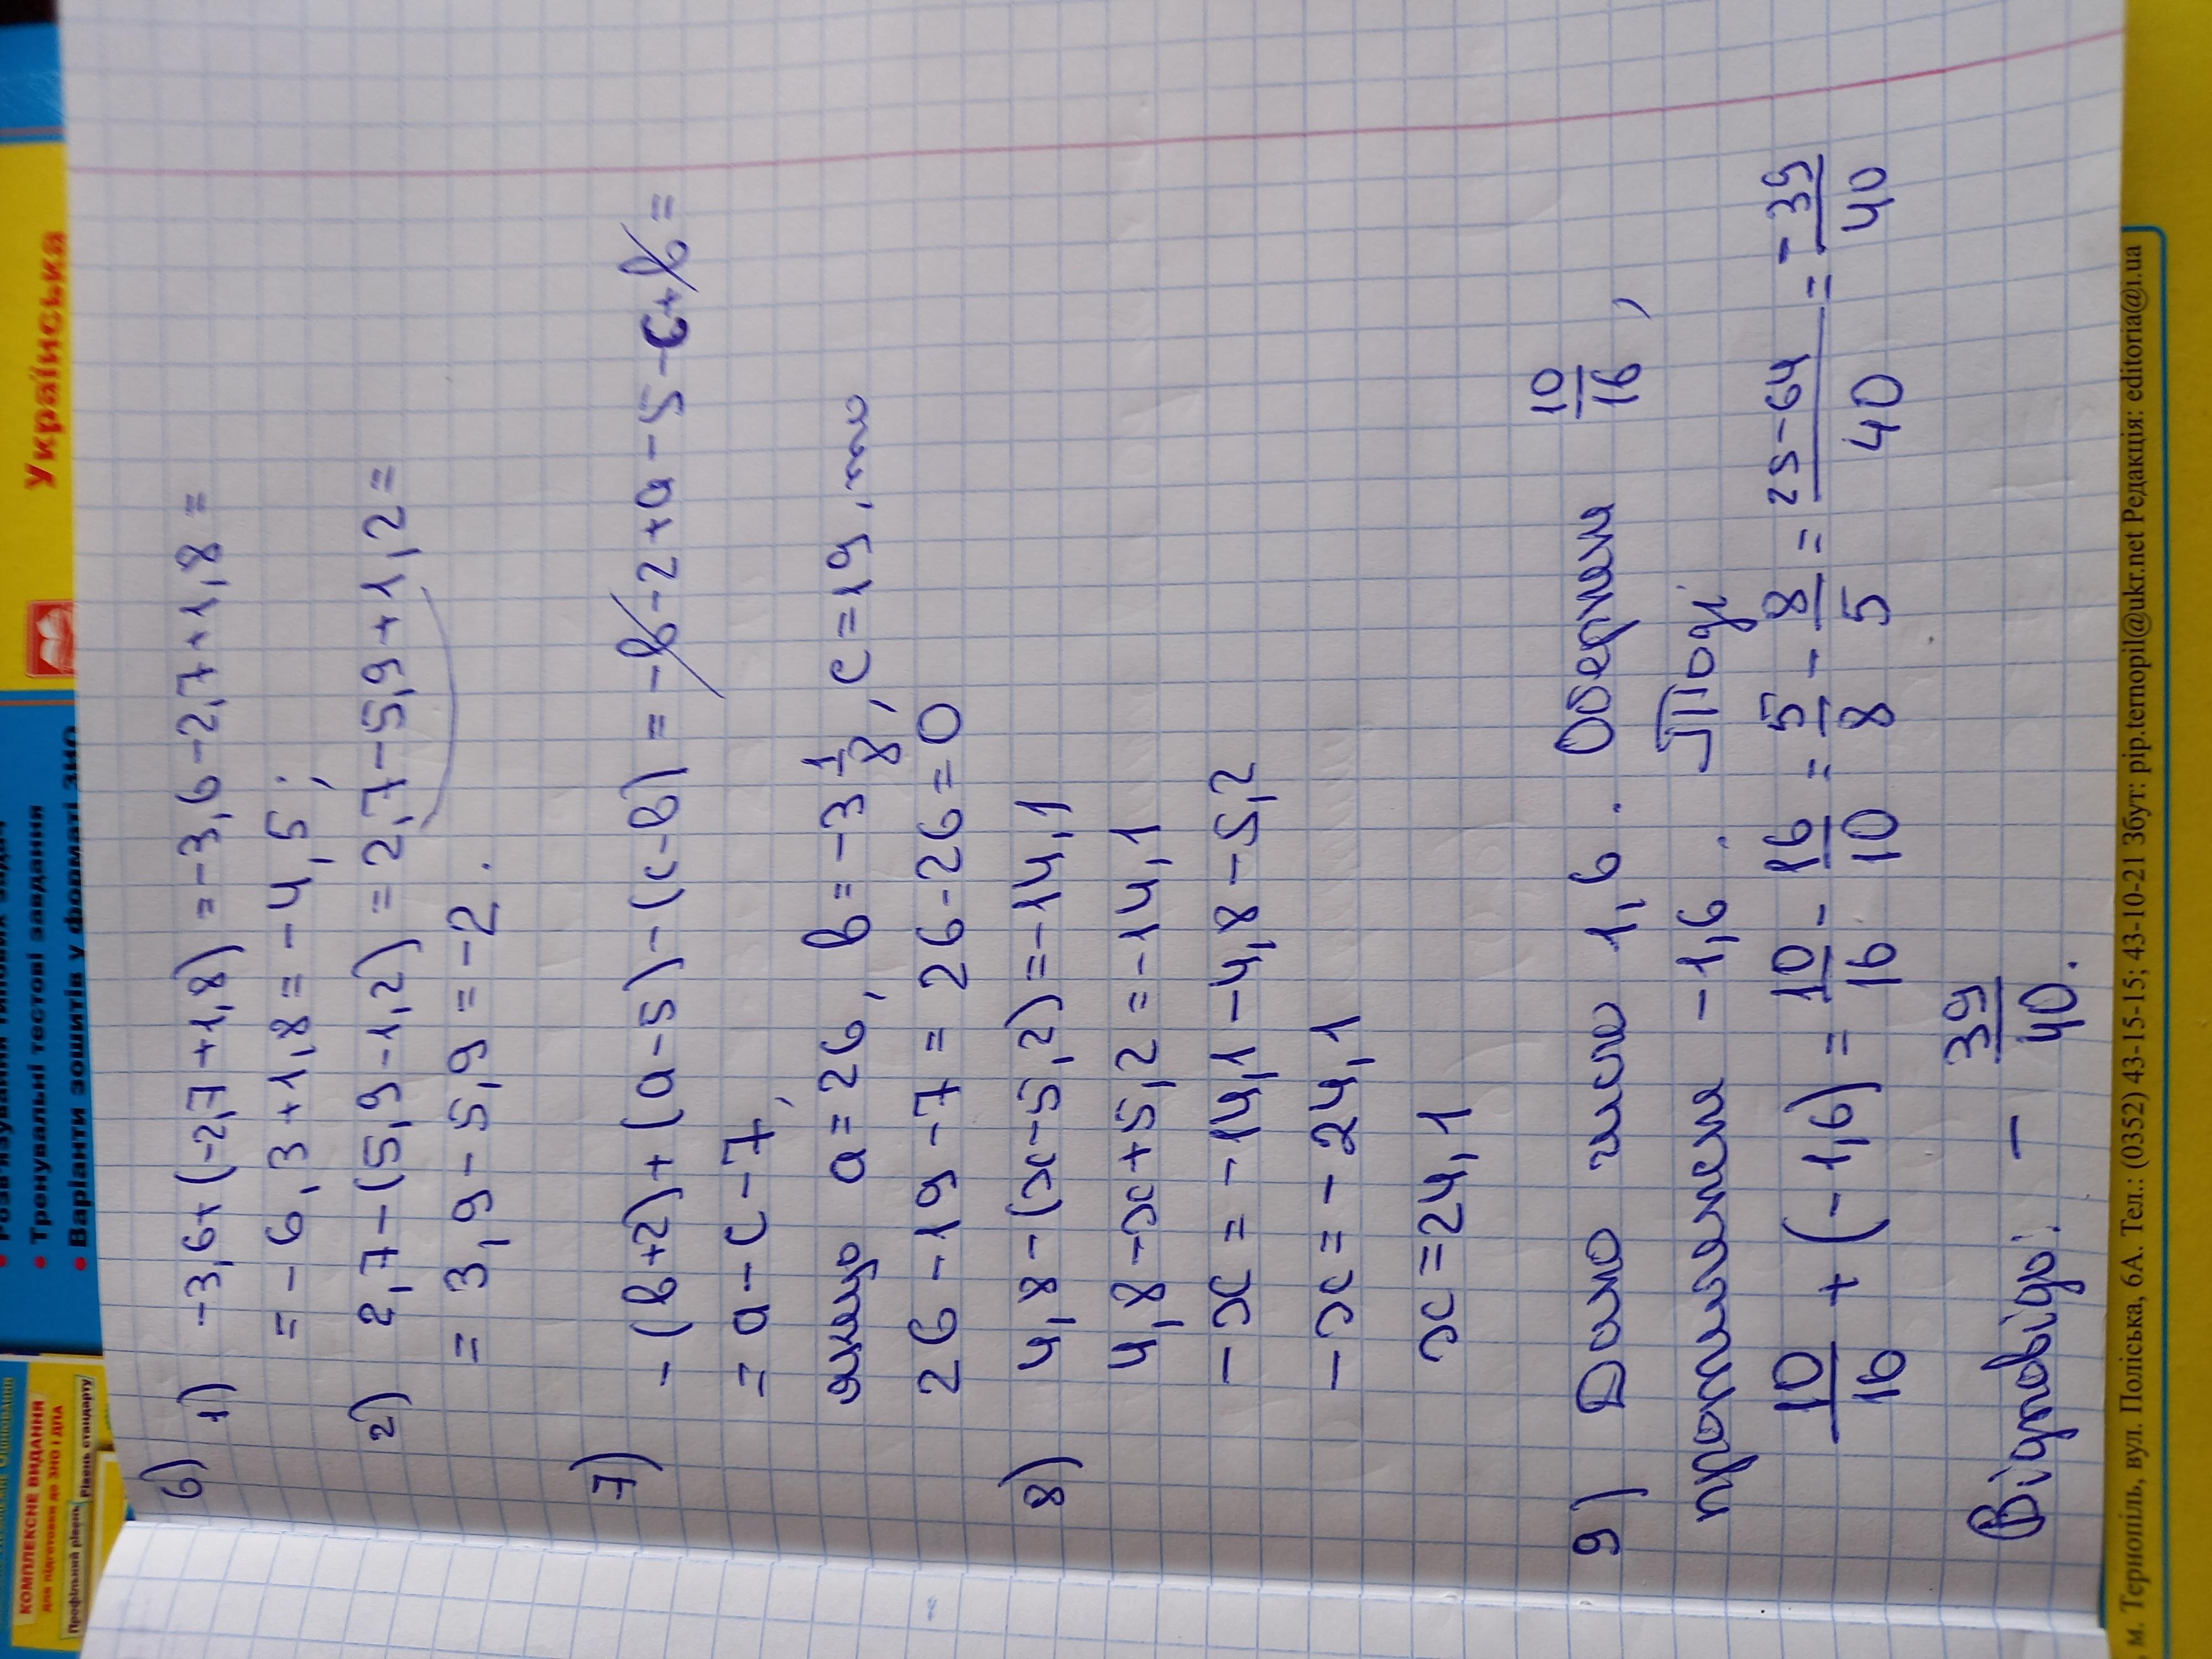 6) 1) -3,6+(-2,7+1,8)=-3,6-2,7+1,8=
=-6,3+1,8=-4,5;
2) 2,7-(5,9-1,2)=2,7-5,9+1,2=
=3,9-5,9=-2.
7) -(в+2)+(а-5)-(с-в)=-в-2+а-5-с+в=
=а-с-7,
якщо а=26, в=-3 1/8, с=19, то
26-19-7=26-26=0
8) 4,8-(х-5,2)=-14,1
4,8-х+5,2=-14,1
-х=-14,1-4,8-5,2
-х=-24,1
х=24,1
9) Дано число 1,6. Обернам 10/16,
протилежнам -1,6. Тоді
10/16+(-1,6)=10/16-16/10=5/8-8/5=25-64/40=-39/40
Відповідь: -39/40.
Українська
Тренувальні тестові завдання
Варіанти зошитів у форматі ЗНО
КОМПЛЕКСНЕ ВИДАННЯ
для підготовки до ЗНО і ДПА
Профільний рівень Рівень стандарту
м. Тернопіль, вул. Поліська, 6А. Тел.: (0352) 43-15-15; 43-10-21 Збут: pip.ternopil@ukr.net Редакція: editoria@i.ua